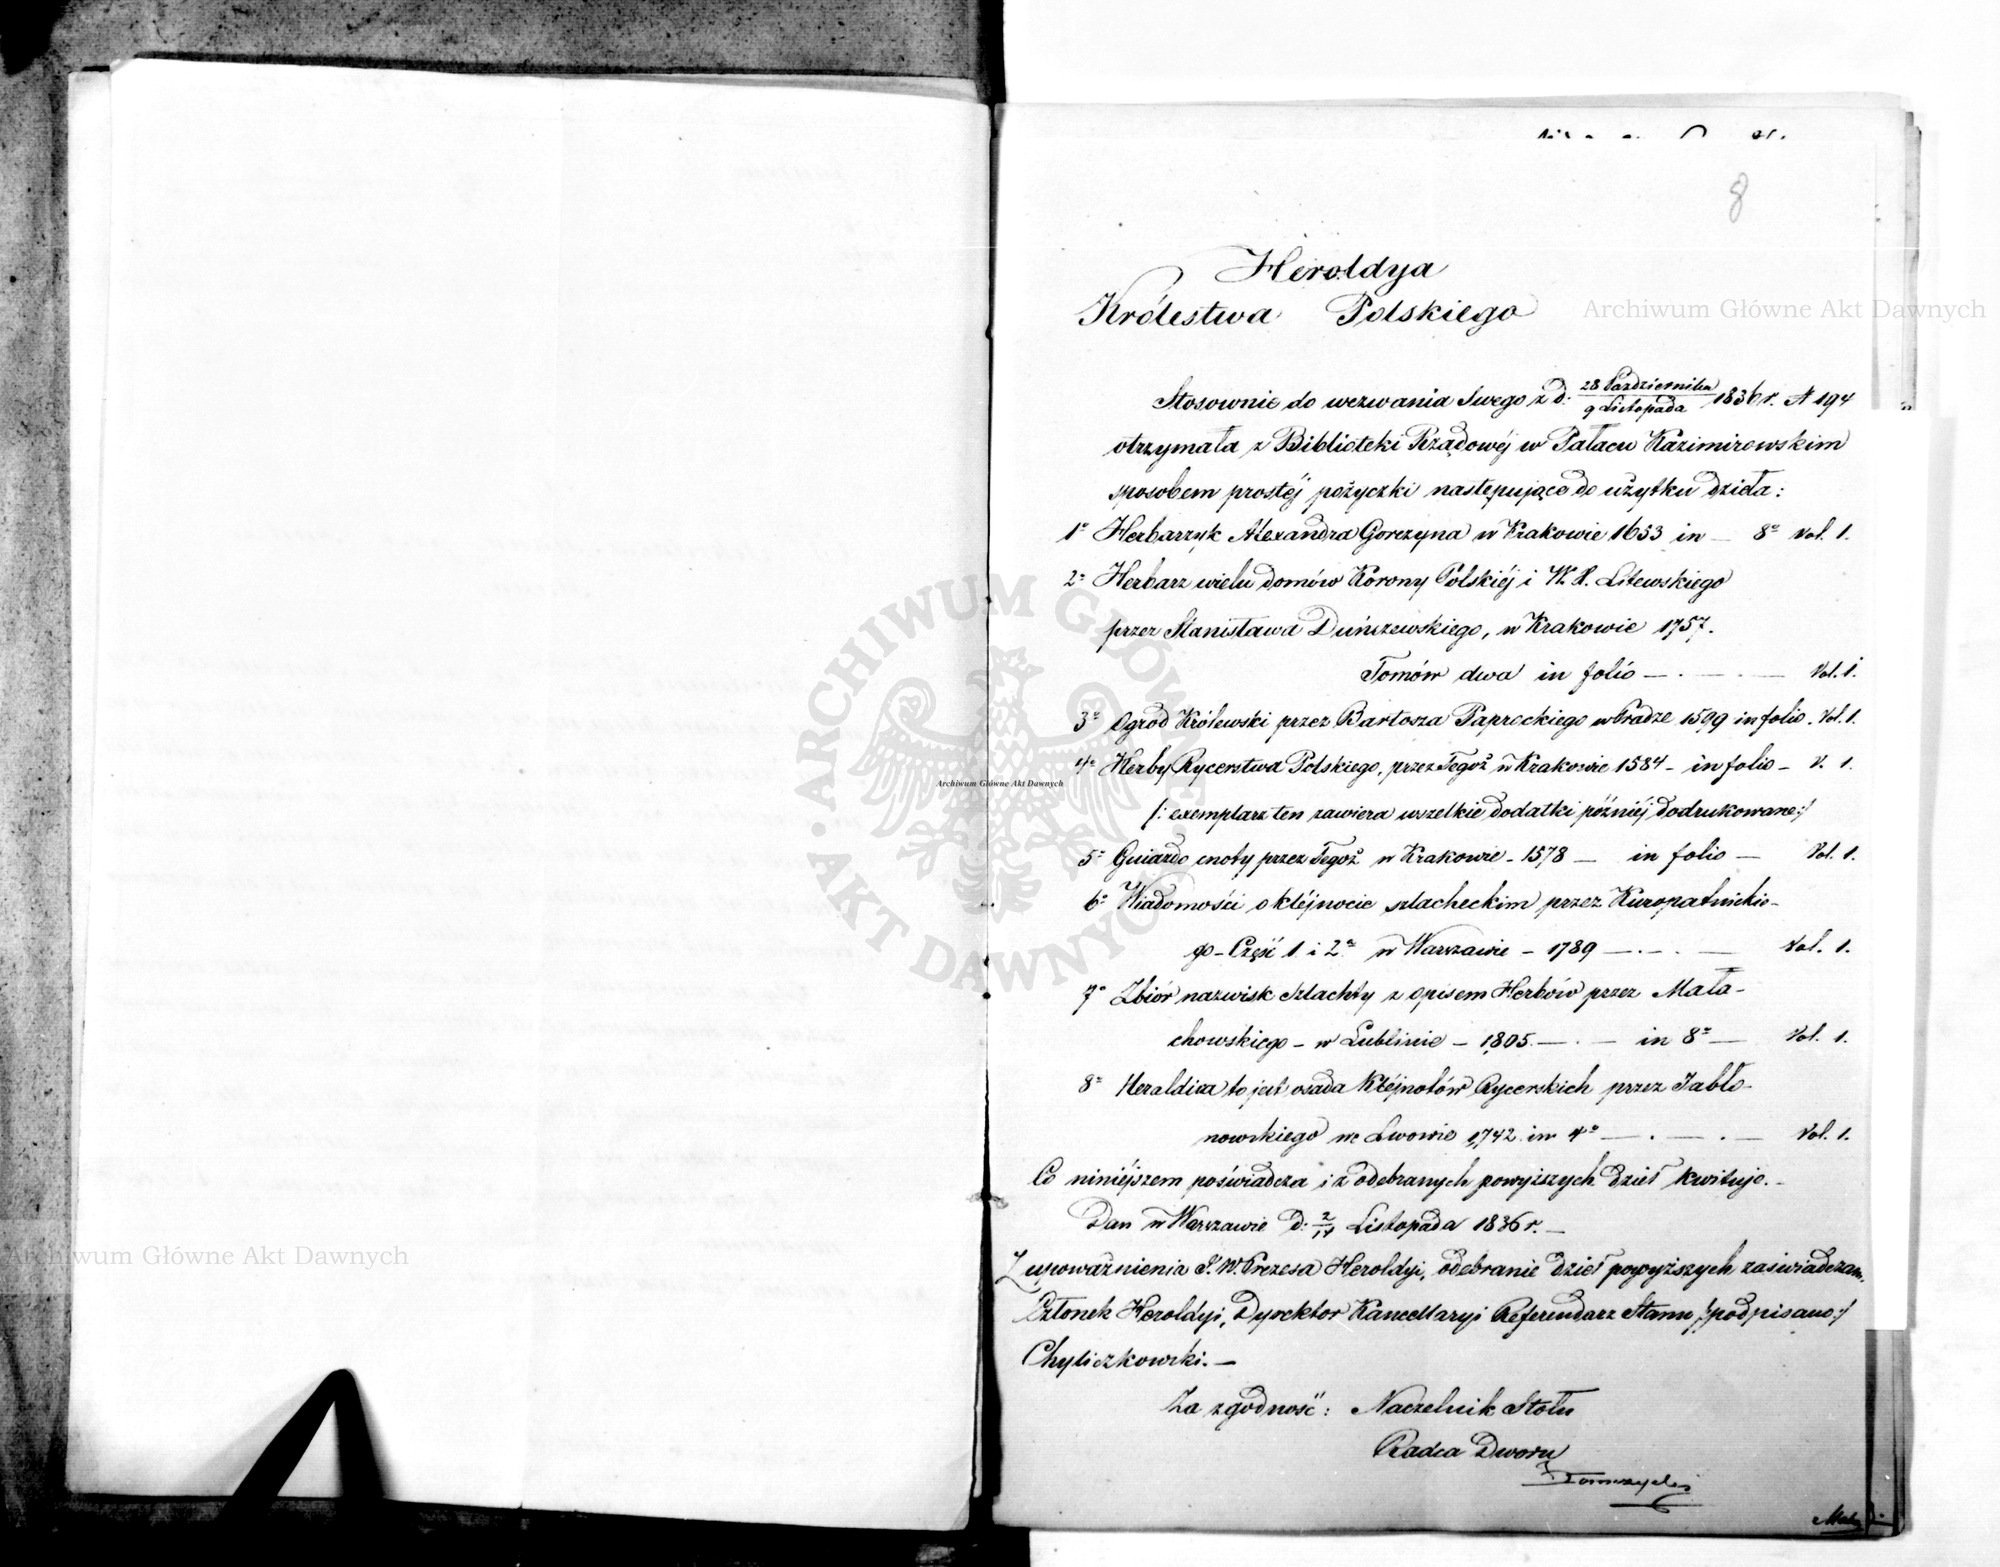 8
Heroldya
Królestwa Polskiego
Archiwum Główne Akt Dawnych
Stosownie do wezwania Swego z d: 28 Października / 9 Listopada 1836 r. N 194
otrzymała z Biblioteki Rządowéj w Pałacu Kazimirowskim
sposobem prostéj pożyczki następujące do użytku dzieła:
1o Herbarzyk Alexandra Gorczyna w Krakowie 1653 in — 8o Vol. 1.
2o Herbarz wielu domów Korony Polskiéj i W. X. Litewskiego
przez Stanisława Duńczewskiego, w Krakowie 1757.
Tomów dwa in folio — . — . — Vol. 1.
3o Ogród Królewski przez Bartosza Paprockiego w Pradze 1599 in folio. Vol. 1.
4o Herby Rycerstwa Polskiego, przez Tegoż w Krakowie 1584 – in folio – V. 1.
/: exemplarz ten zawiera wszelkie dodatki późniéj dodrukowane:/
5o Gniazdo cnoty przez Tegoż w Krakowie – 1578 — in folio — Vol. 1.
6o Wiadomości o kléjnocie szlacheckim przez Kuropatnickie-
go – Część 1. i 2a w Warszawie – 1789 — . — . — Vol. 1.
7o Zbiór nazwisk Szlachty z opisem Herbów przez Mała-
chowskiego – w Lublinie – 1805. — . — in 8o — Vol. 1.
8o Heraldica to jest osada Kléjnotów Rycerskich przez Jabło-
nowskiego we Lwowie 1742. in 4o — . — . — Vol. 1.
Co niniéjszem poświadcza i z odebranych powyższych dzieł kwituje. –
Dan w Warszawie d: 2/14 Listopada 1836 r. —
Z upoważnienia J. W. Prezesa Heroldyi, odebranie dzieł powyższych zaświadczam,
Członek Heroldyi, Dyrektor Kancellaryi Referendarz Stanu /:podpisano:/
Chyliczkowski. —
Za zgodność: Naczelnik Stołu
Radca Dworu
Archiwum Główne Akt Dawnych
ARCHIWUM GŁÓWNE AKT DAWNYCH
Archiwum Główne Akt Dawnych